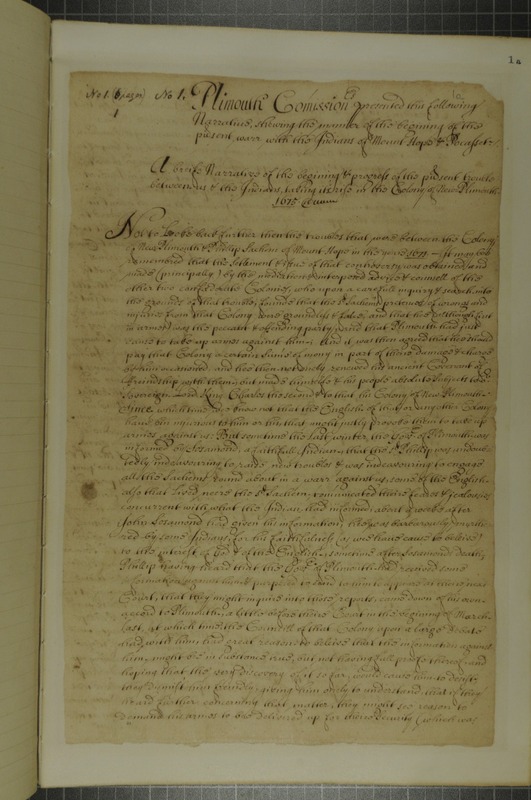 1a
No 1. No 1. Plimouth Comission presented the following
Narrative, shewing the manner of the begining of the
present warr with the Indians of Mount Hope & Pocasset
A breife Narrative of the begining & progress of the present trouble
between us & the Indians, taking its rise in the Colony of New Plimouth
1675
Not to looke back further then the troubles that were between the Colony
of New Plimouth & Philip Sachim of Mount Hope in the yeare 1671 It may bee
remembred that the setlement & issue of that controversy was obtained and
made (principally) by the mediation & interposed advice & councell of the
other two confederate Colonies, who upon a carefull inquiry & search into
the grounds of that trouble, found that the sd Sachims pretences of wrongs and
injuries from that Colony were groundless & false, and that hee (although first
in armes) was the peccant & offending party, and that Plimouth had just
cause to take up armes against him; And it was then agreed that hee should
pay that Colony a certain summe of mony in part of their damage & charge
by him occasioned and hee then not only renewed his ancient Covenant of
freindship with them; but made himselfe & his people absolute subjects to our
Soveraign Lord King Charles the second & to that his Colony of New Plimouth
Since which time wee know not that the English of that or any other Colony
have been injurious to him or his that might justly provoke them to take up
armes against us: But sometime the last winter the Govr of Plimouth was
informed by Sosamond, a faithfull Indian, that the sd Philip was undoubtedly
indeavouring to raise new troubles & was indeavouring to engage
all the Sachems round about in a warr against us; some of the English
also that lived neere the sd Sachim, comunicated their feares & jealosies
concurrent with what the Indian had informed: about a weeke after
John Sosamond had given his information, hee was barbarously murthered
by some Indians for his faithfulnes (as wee have cause to believe)
to the interest of God & of the English; sometime after Sosamonds death,
Philip having heard that the Govr of Plimouth had received some
information against him & purposed to send to him to appeare at their next
Court, that they might inquire into those reports, came down of his own
accord to Plimouth a little before their Court in the begining of March
last, at which time the Councill of that Colony upon a large debate
had with him, had great reason to believe that the information against
him, might bee in substance true, but not having full proofe thereof and
hoping that the very discovery of it so far, would cause him to desist
they dismist him freindly; giving him only to understand, that if they
heard further concerning that matter, they might see reason to
demand his armes to bee delivered up for their security (which was